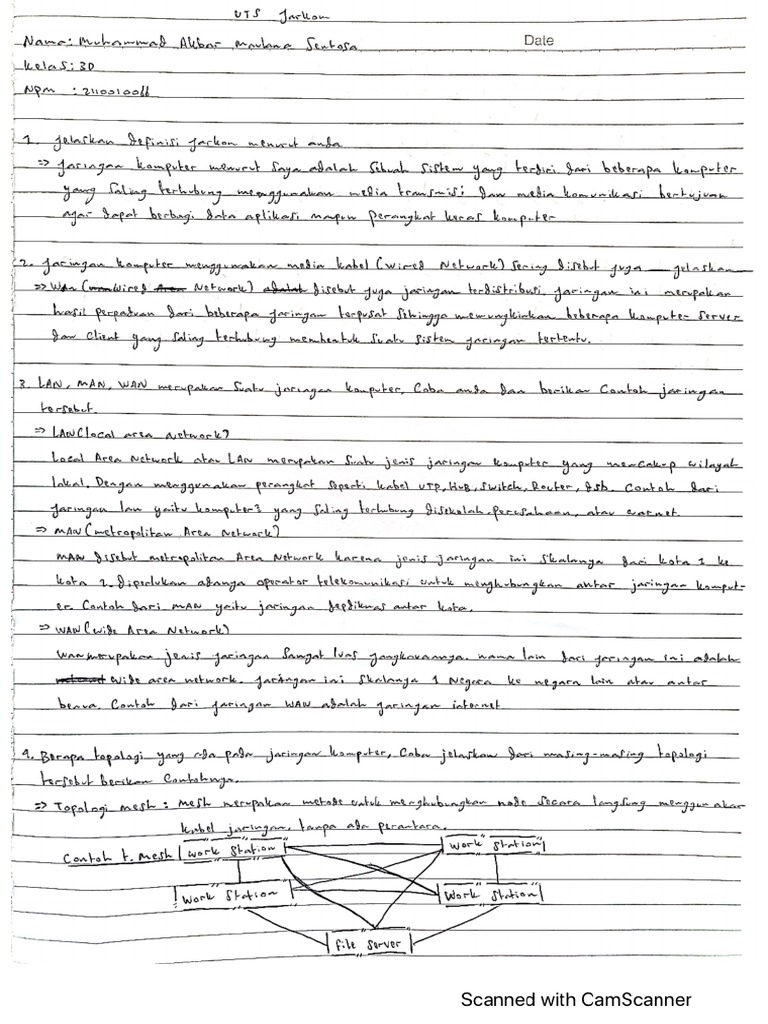 UTS Jarkom
Nama: Muhammad Akbar Maulana Sentosa
Date
Kelas: 3D
Npm : 2110010066
1. Jelaskan Definisi Jarkom menurut anda
=> Jaringan komputer menurut saya adalah sebuah sistem yang terdiri dari beberapa komputer
yang saling terhubung menggunakan media transmisi dan media komunikasi bertujuan
agar dapat berbagi data aplikasi maupun perangkat keras komputer
2. Jaringan komputer menggunakan media kabel (Wired Network) sering disebut juga __ jelaskan
=> Wan (Wired Network) disebut juga jaringan terdistribusi. Jaringan ini merupakan
hasil perpaduan dari beberapa jaringan terpusat sehingga memungkinkan beberapa komputer server
dan client yang saling terhubung membentuk suatu sistem jaringan tertentu.
3. LAN, MAN, WAN merupakan suatu jaringan komputer, Coba anda dan berikan Contoh jaringan
tersebut.
=> LAN (local area Network)
Local Area Network atau LAN merupakan suatu jenis jaringan komputer yang mencakup wilayah
lokal. Dengan menggunakan perangkat seperti kabel UTP, HUB, Switch, Router, dsb. Contoh dari
jaringan lan yaitu komputer2 yang saling terhubung disekolah, perusahaan, atau warnet.
=> MAN (metropolitan Area Network)
MAN disebut metropolitan Area Network karena jenis jaringan ini skalanya dari kota 1 ke
kota 2. diperlukan adanya operator telekomunikasi untuk menghubungkan antar jaringan komput-
er. Contoh dari MAN yaitu jaringan depdiknas antar kota.
=> WAN (wide Area Network)
WAN merupakan jenis jaringan sangat luas jangkauannya. nama lain dari jaringan ini adalah
wide area network. jaringan ini skalanya 1 Negara ke negara lain atau antar
benua. Contoh dari jaringan WAN adalah jaringan internet
4. Berapa topologi yang ada pada jaringan komputer, Coba jelaskan dari masing-masing topologi
tersebut berikan Contohnya.
=> Topologi mesh : Mesh merupakan metode untuk menghubungkan node secara langsung menggunakan
kabel jaringan, tanpa ada perantara.
Contoh t. Mesh
Work Station
Work Station
Work Station
Work Station
File Server
Scanned with CamScanner